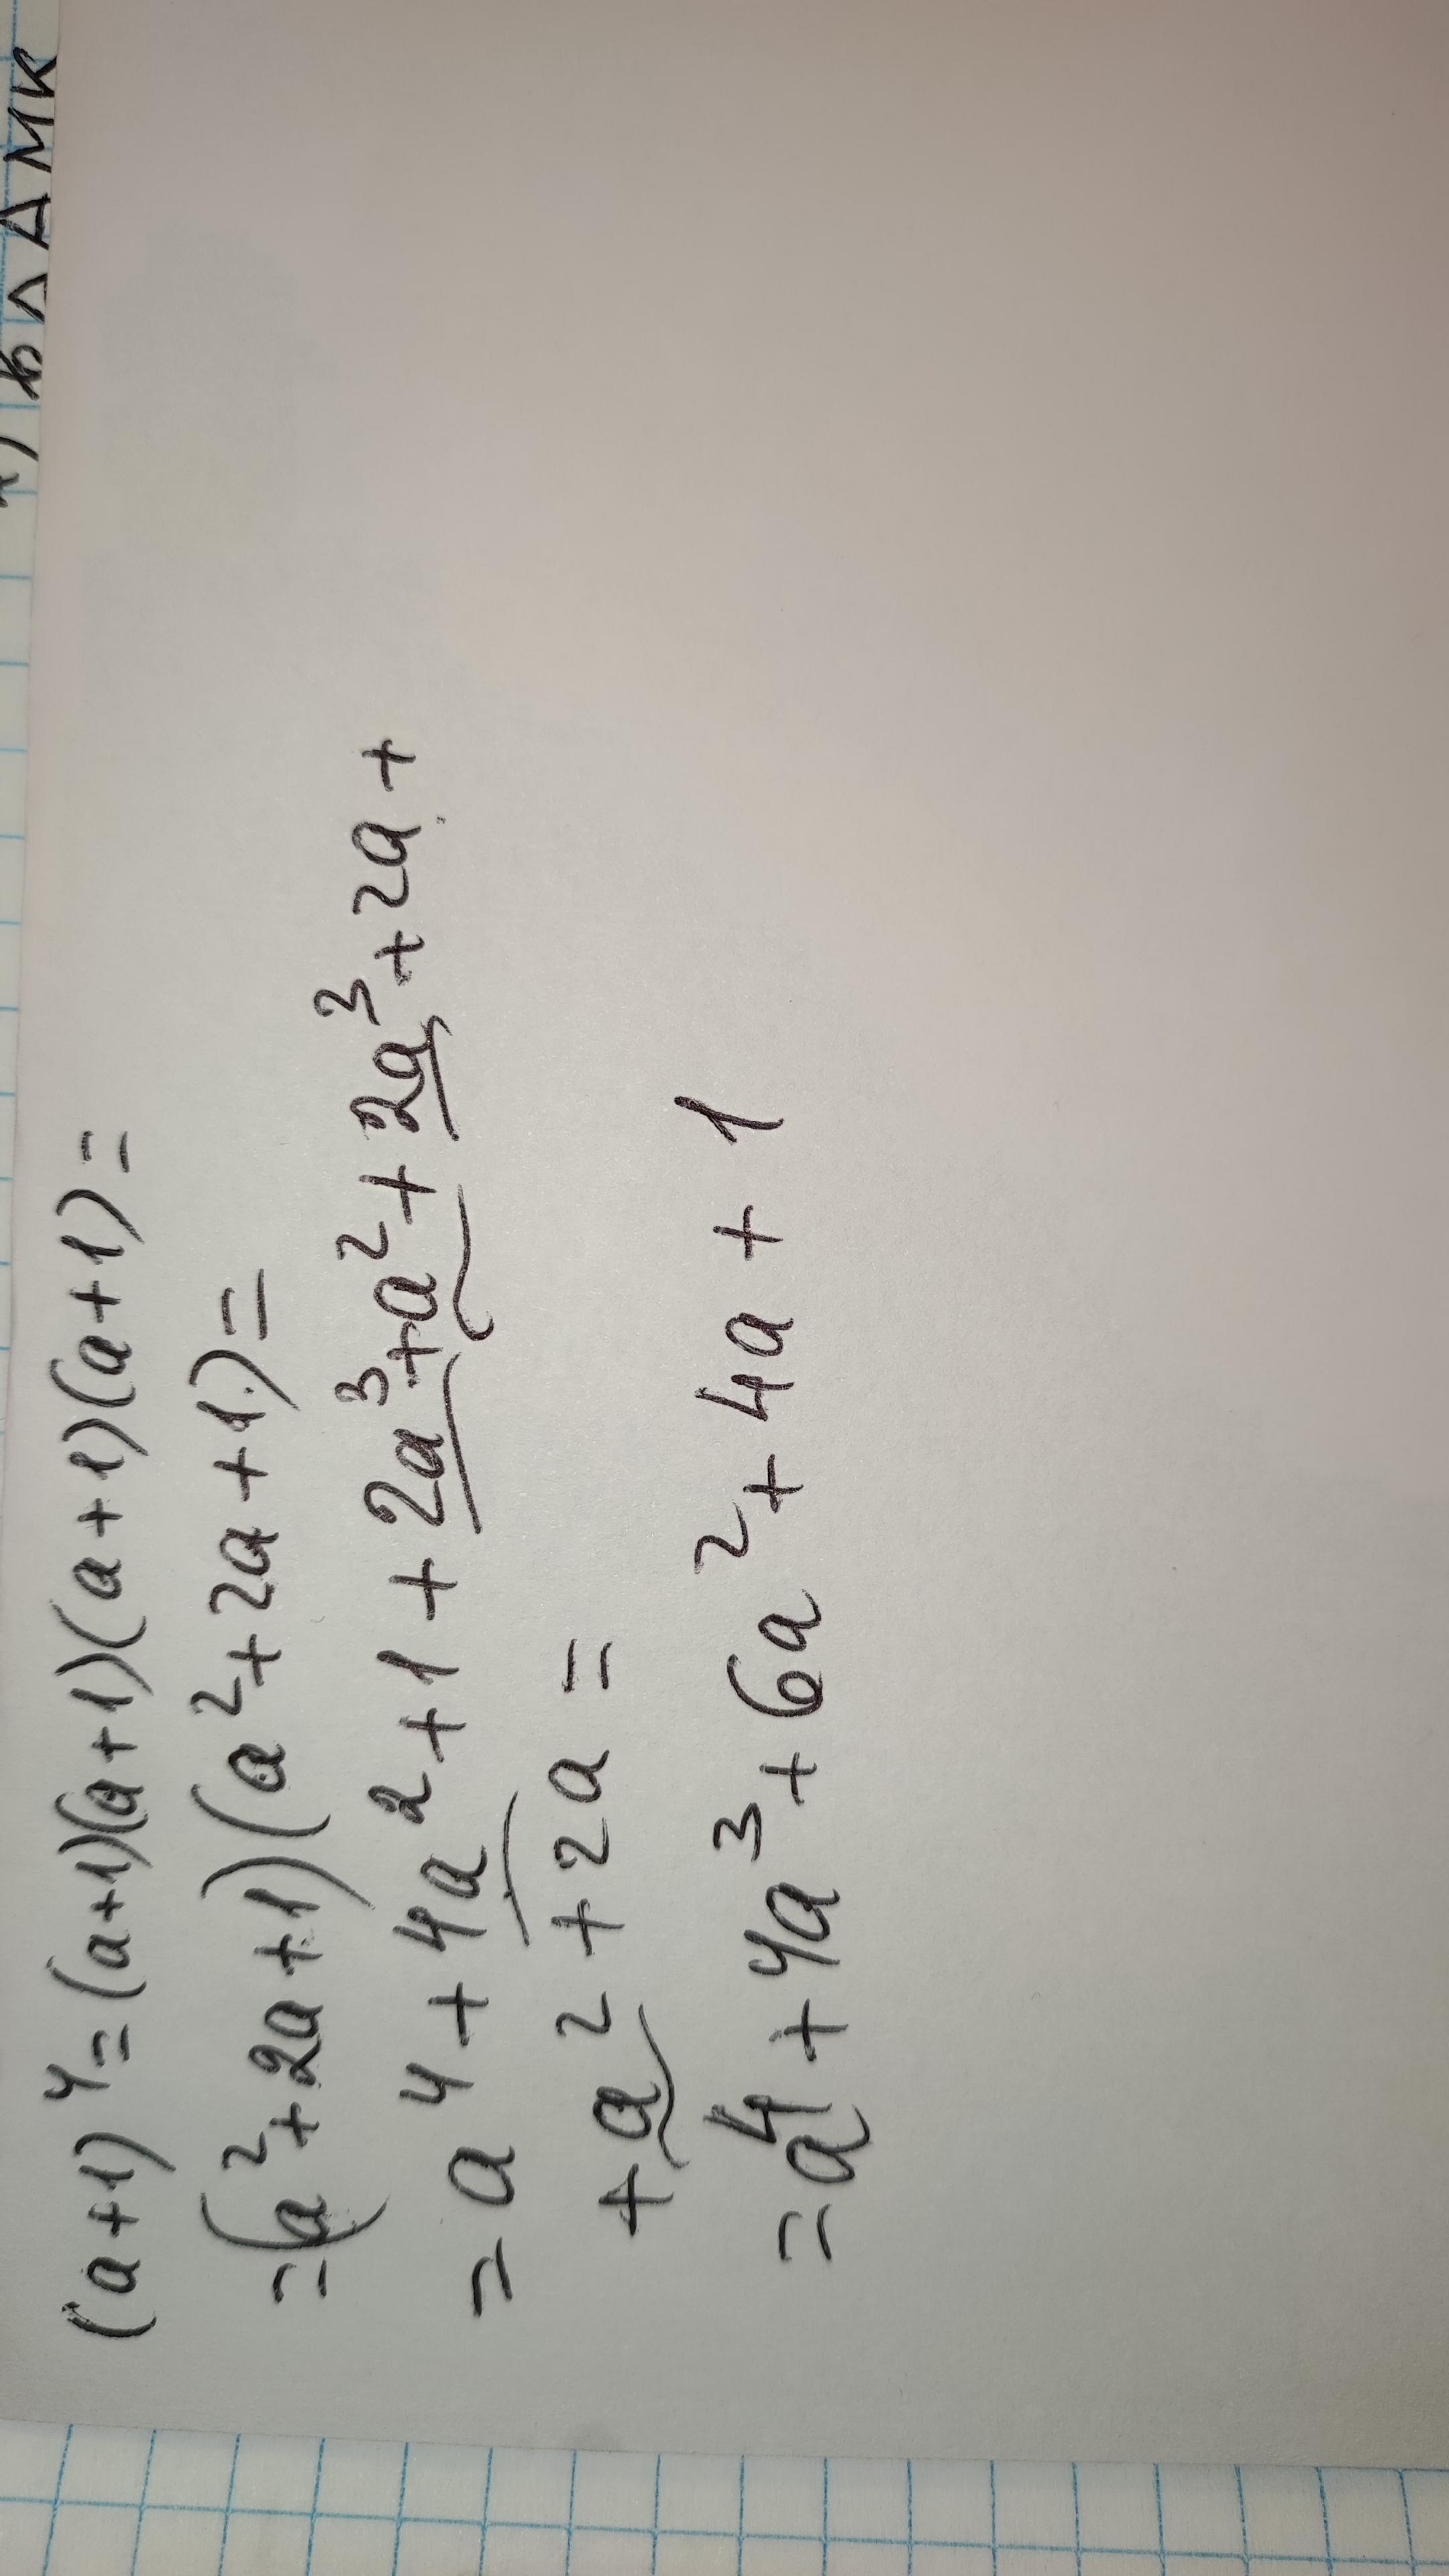 б) ∆ АМК
(a+1)⁴=(a+1)(a+1)(a+1)(a+1)=
=(a²+2a+1)(a²+2a+1)=
=a⁴+4a²+1+2a³+a²+2a³+2a+
+a²+2a=
=a⁴+4a³+6a²+4a+1